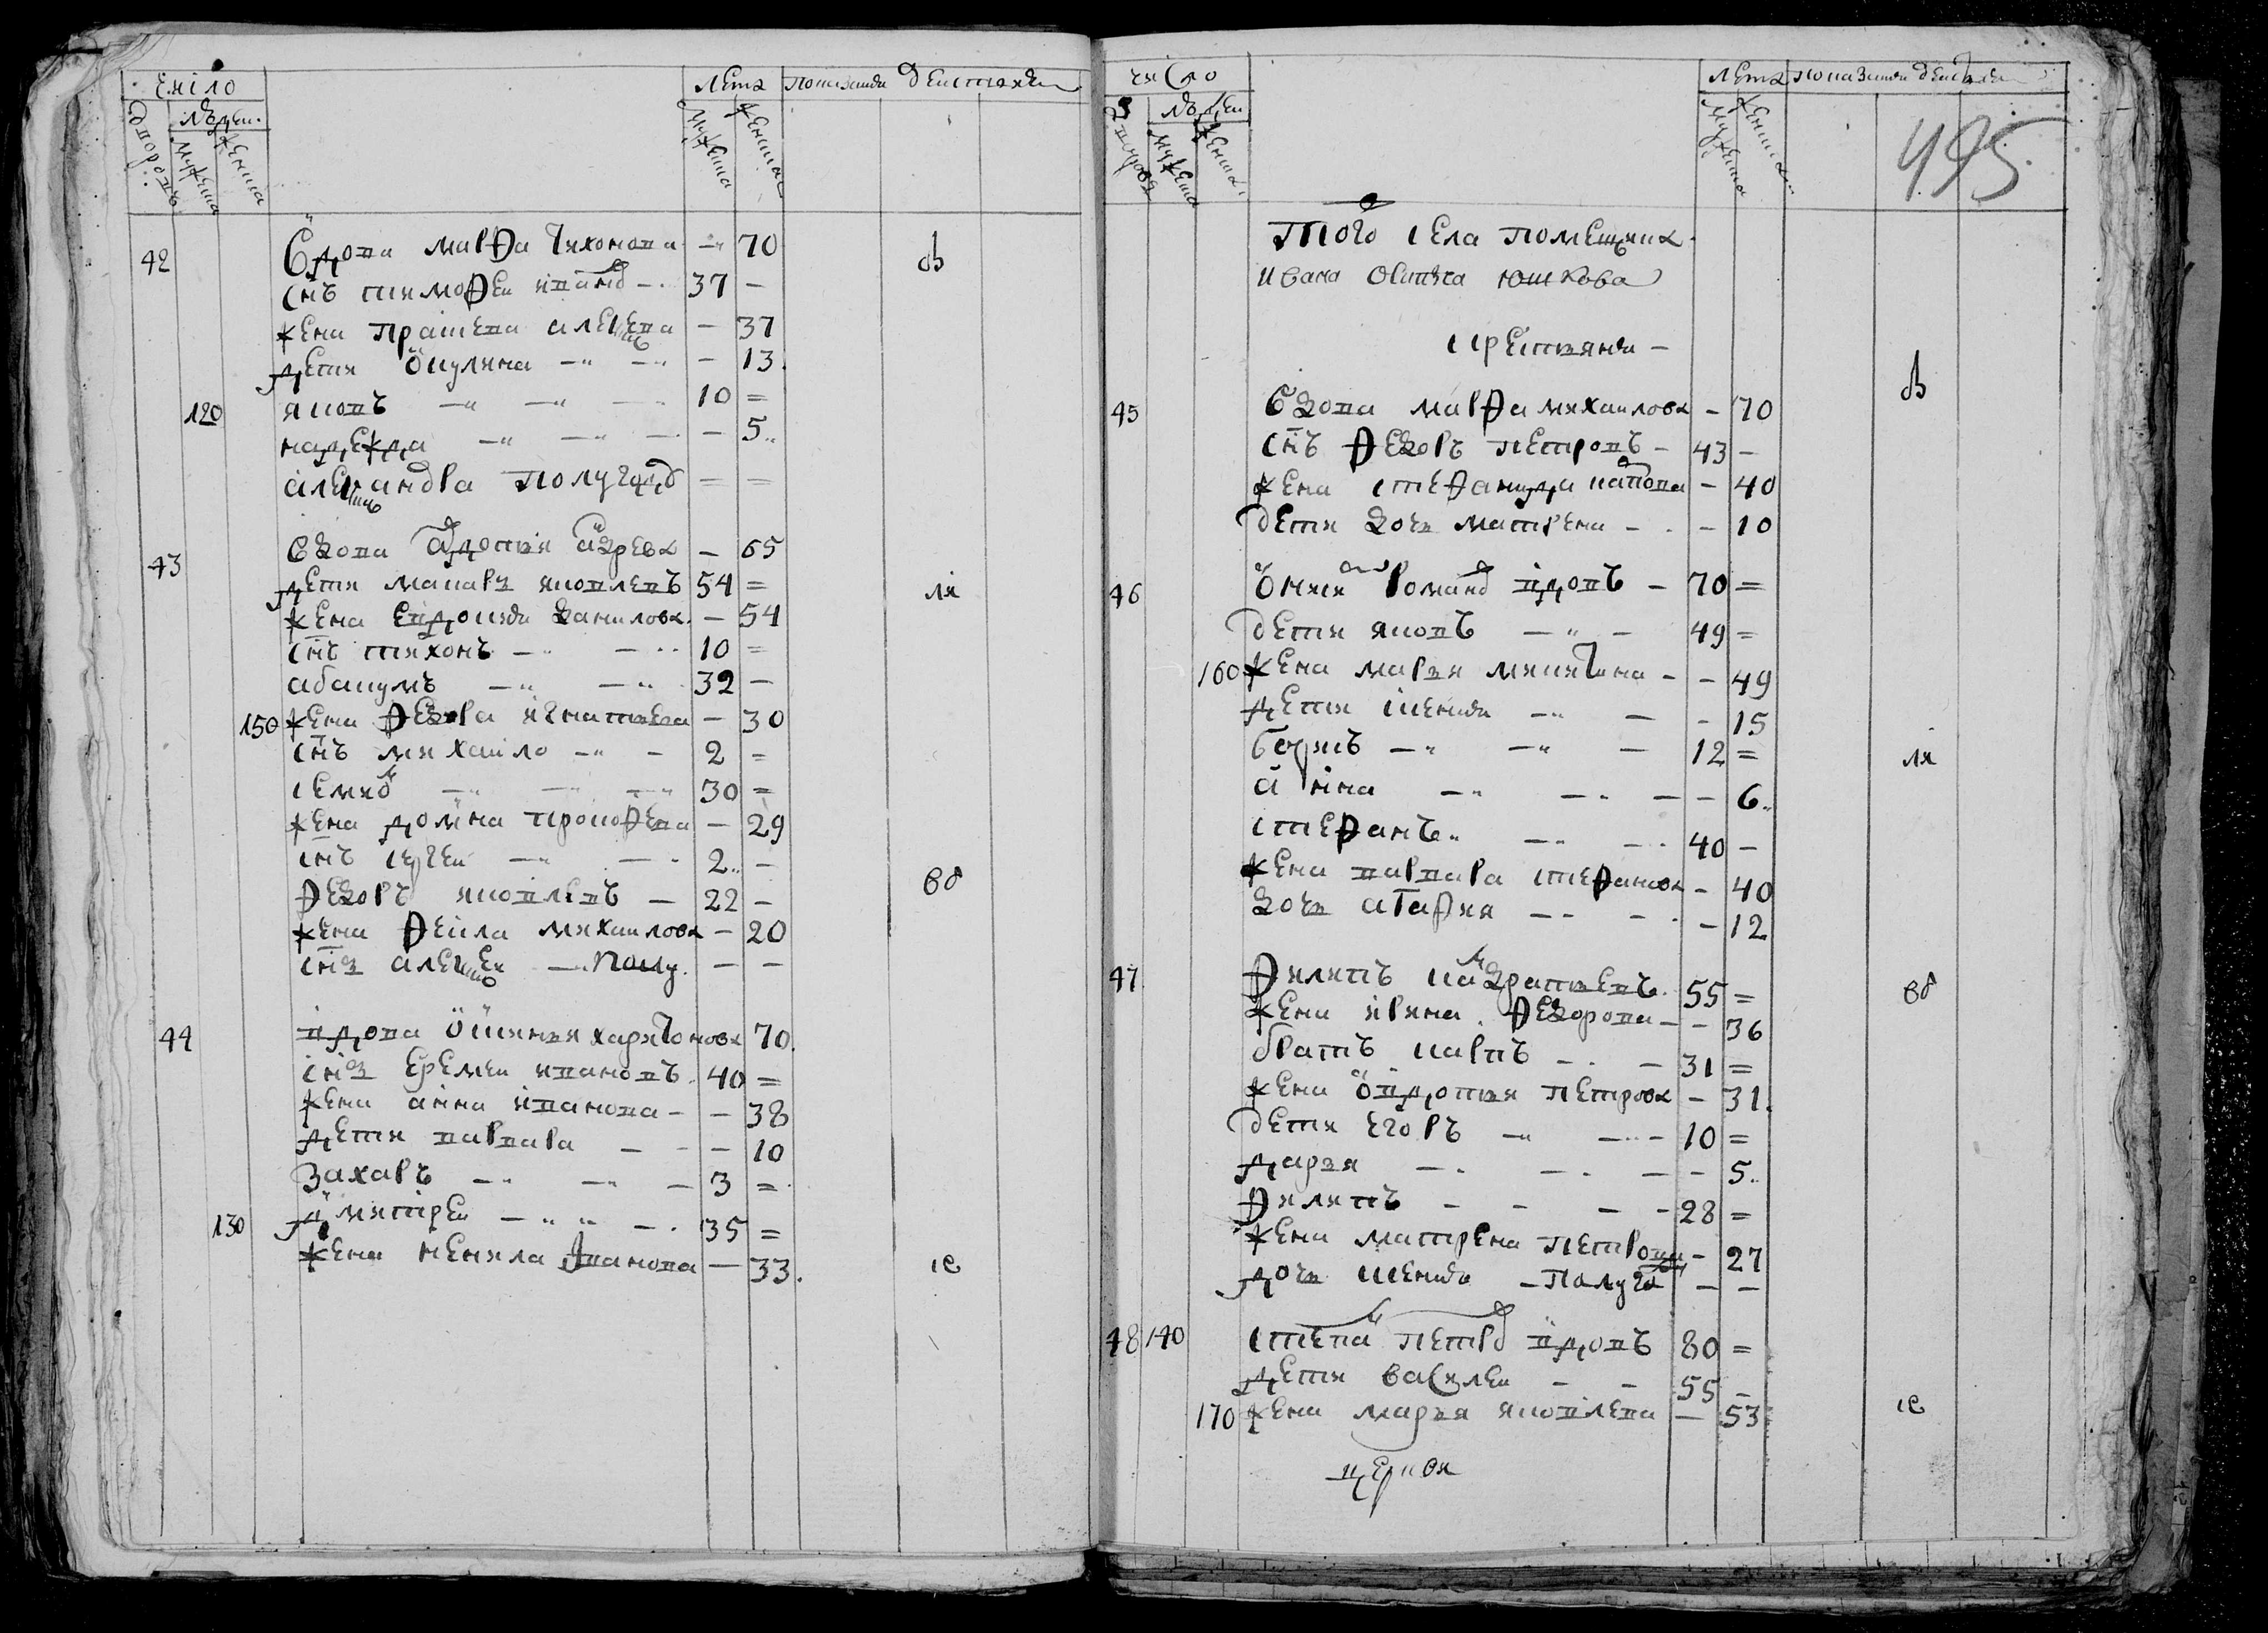 число
лета
показание действа
дворовъ
людей
мужеска
женска
42 Вдова марѳа тихонова - 70
снъ тимоѳеи иванов - 37 -
жена прасковя алексеева - 37
дети акулина - 13
120 яковъ 10 =
надежда - 5
александра полугод = =
43 вдова авдотья андрева - 65
дети макаръ яковлевъ 54 =
жена евдокия данилова - 54
снъ тихонъ 10 =
абакумъ 32 -
150 жена ѳедора игнатьева - 30
снъ михаило - 2 =
семион 30 =
жена домна прокоѳева - 29
снъ сергеи 2 -
ѳедоръ яковлевъ - 22 -
жена ѳекла михаилова - 20
снъ алексеи - полу - -
44 вдова аксинья харитонова 70
снъ еремеи ивановъ 40 =
жена анна иванова - - 38
дети варвара - 10
захаръ 3 =
130 дмитреи 35 =
жена ненила иванова - 33
въ
ли
во
ѣ
число
лета
показание действа
дворовъ
людей
мужеска
женска
495
того села помещика
ивана осипова юшкова
крестьяня -
45 вдова марѳа михаилова - 70
снъ ѳедоръ петровъ - 43 -
жена степанида карпова - 40
дети дочь матрена - - 10
46 аникии романов вдовъ - 70 =
дети яковъ 49 =
160 жена марья микитина - - 49
дети аксинья - 15
борисъ 12 =
анна - 6
стеѳанъ 40 -
жена варвара стеѳанова - 40
дочь агаѳия - 12
47 ѳилипъ кондратьевъ 55 =
жена ирина ѳедорова - - 36
братъ карпъ - 31 =
жена авдотья петрова - 31
дети егоръ 10 =
дарья - 5
ѳилипъ 28 =
жена матрена петрова - 27
дочь аксинья - полуго - -
48 140 степан петров вдовъ 80 =
дети василеи 55 -
170 жена марья яковлева - 53
церкви